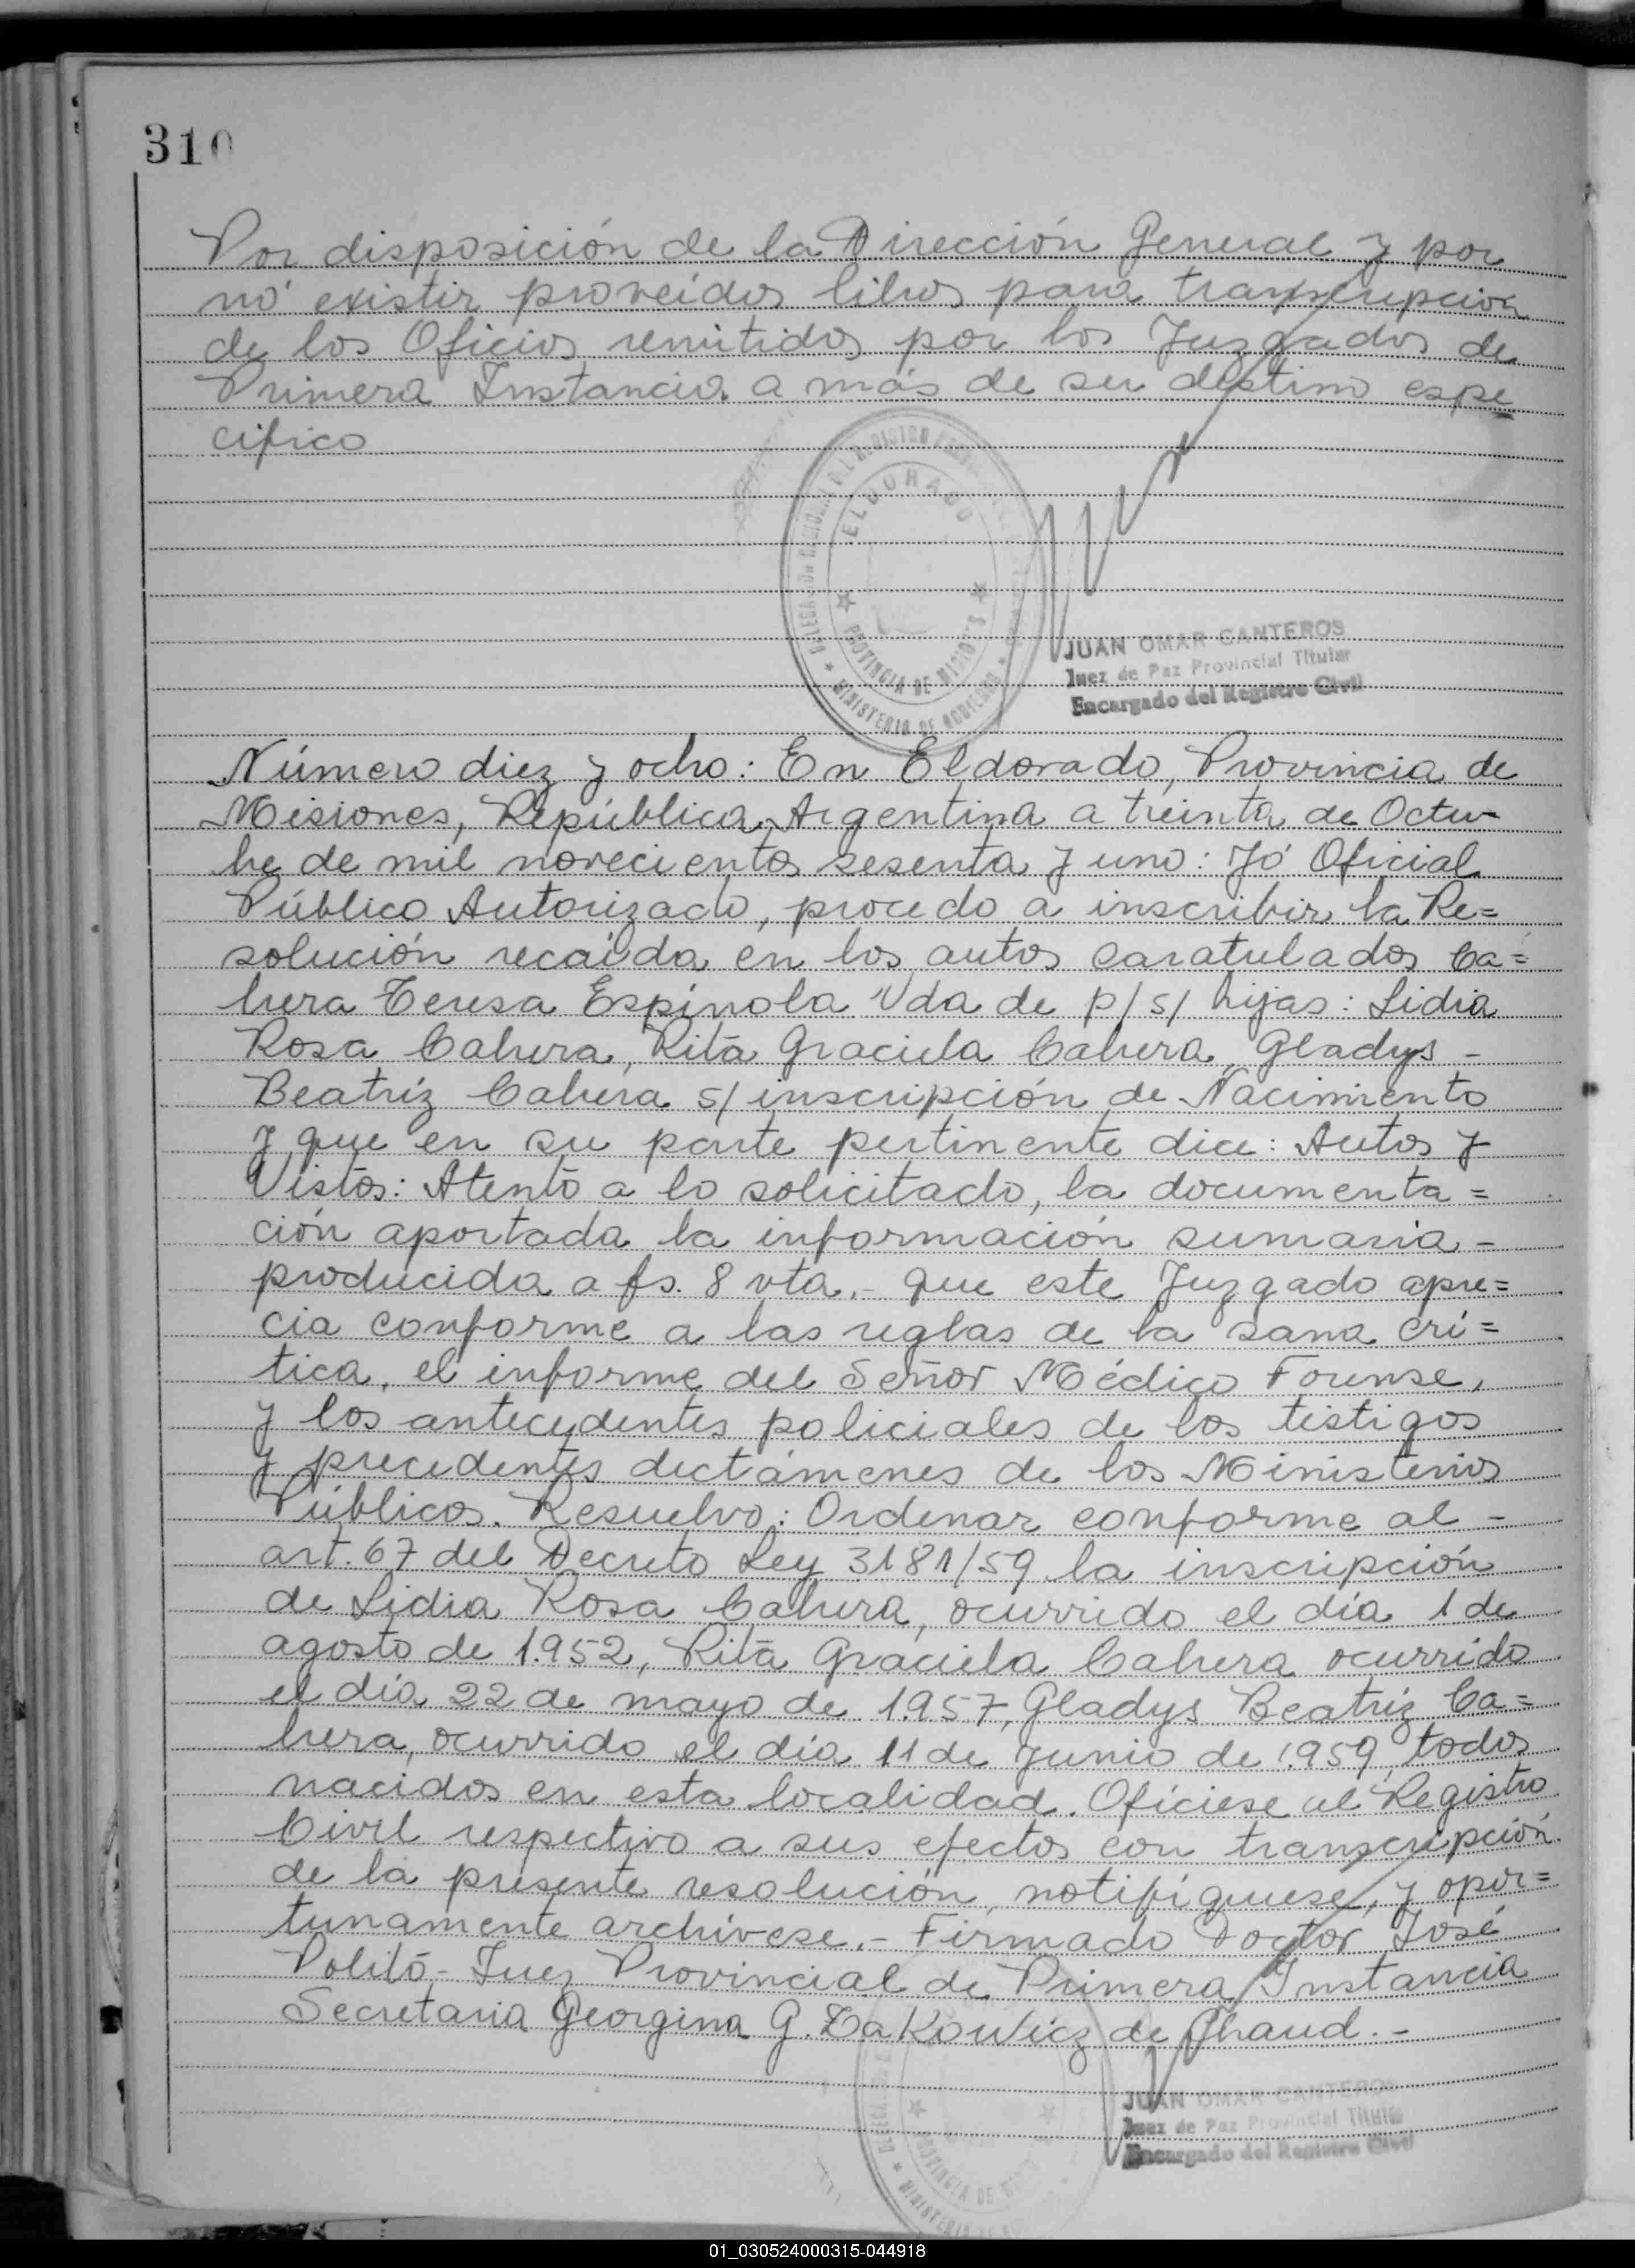 310
Por disposición de la Dirección General y por
nó existir proveidos libros para transcripción
de los Oficios remitidos por los Juzgados de
Primera Instancia a más de su destino espe
cifico
ELDORADO
PROVINCIA DE MISIONES
MINISTERIO DE GOBIERNO
JUAN OMAR CANTEROS
Juez de Paz Provincial Titular
Encargado del Registro Civil
Número diez y ocho: En Eldorado, Provincia de
Misiones, República Argentina a treinta de Octu-
bre de mil novecientos sesenta y uno: Yó Oficial
Público Autorizado, procedo a inscribir la Re=
solución recaída en los autos caratulados Ca=
brera Teresa Espínola Vda de p/s/ hijas: Lidia
Rosa Cabrera, Rita Graciela Cabrera, Gladys -
Beatríz Cabrera s/ inscripción de Nacimiento
y que en su parte pertinente dice: Autos y
Vistos: Atento a lo solicitado, la documenta=
ción aportada la información sumaria -
producida a fs. 8 vta.- que este Juzgado apre=
cia conforme a las reglas de la sana crí=
tica, el informe del Señor Médico Forense,
y los antecedentes policiales de los testigos
y precedentes dictámenes de los Ministerios
Públicos. Resuelvo: Ordenar conforme al -
art. 67 del Decreto Ley 3181/59 la inscripción
de Lidia Rosa Cabrera, ocurrido el día 1 de
agosto de 1.952, Rita Graciela Cabrera ocurrido
el día 22 de mayo de 1.957, Gladys Beatríz Ca=
brera, ocurrido el día 11 de Junio de 1.959, todos
nacidos en esta localidad. Ofíciese al Registro
Civil respectivo a sus efectos con transcripción
de la presente resolución, notifíquese, y opor=
tunamente archívese.- Firmado Doctor José
Politó - Juez Provincial de Primera Instancia
Secretaria Georgina G. Zakowicz de Chaud.-
JUAN OMAR CANTEROS
Juez de Paz Provincial Titular
Encargado del Registro Civil
01_030524000315-044918